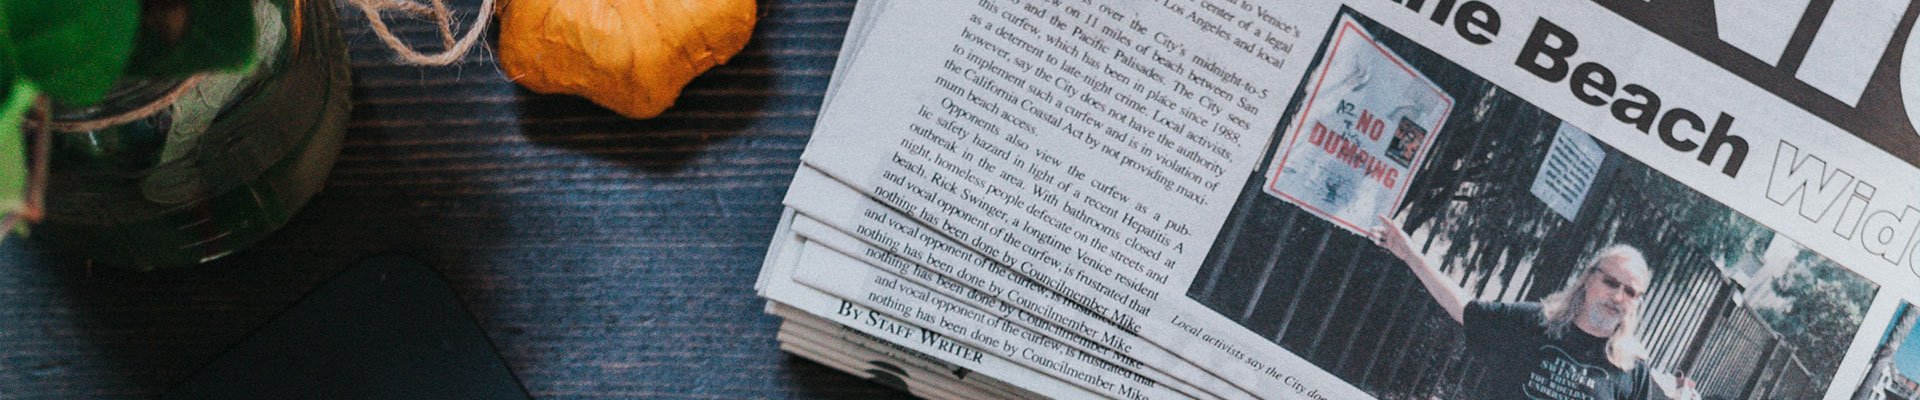 to Venice's
center of a legal
Los Angeles and local
over the City's midnight-to-5
on 11 miles of beach between San
and the Pacific Palisades. The City sees
this curfew, which has been in place since 1988,
as a deterrent to late-night crime. Local activists,
however, say the City does not have the authority
to implement such a curfew and is in violation of
the California Coastal Act by not providing maxi-
mum beach access.
Opponents also view the curfew as a pub-
lic safety hazard in light of a recent Hepatitis A
outbreak in the area. With bathrooms closed at
night, homeless people defecate on the streets and
beach. Rick Swinger, a longtime Venice resident
and vocal opponent of the curfew, is frustrated that
nothing has been done by Councilmember Mike
and vocal opponent of the curfew, is frustrated that
nothing has been done by Councilmember Mike
and vocal opponent of the curfew, is frustrated that
nothing has been done by Councilmember Mike
BY STAFF WRITER
the Beach
NO
DUMPING
Local activists say the City
IT'S A
THING
YOU WOULDN'T
UNDERSTAND